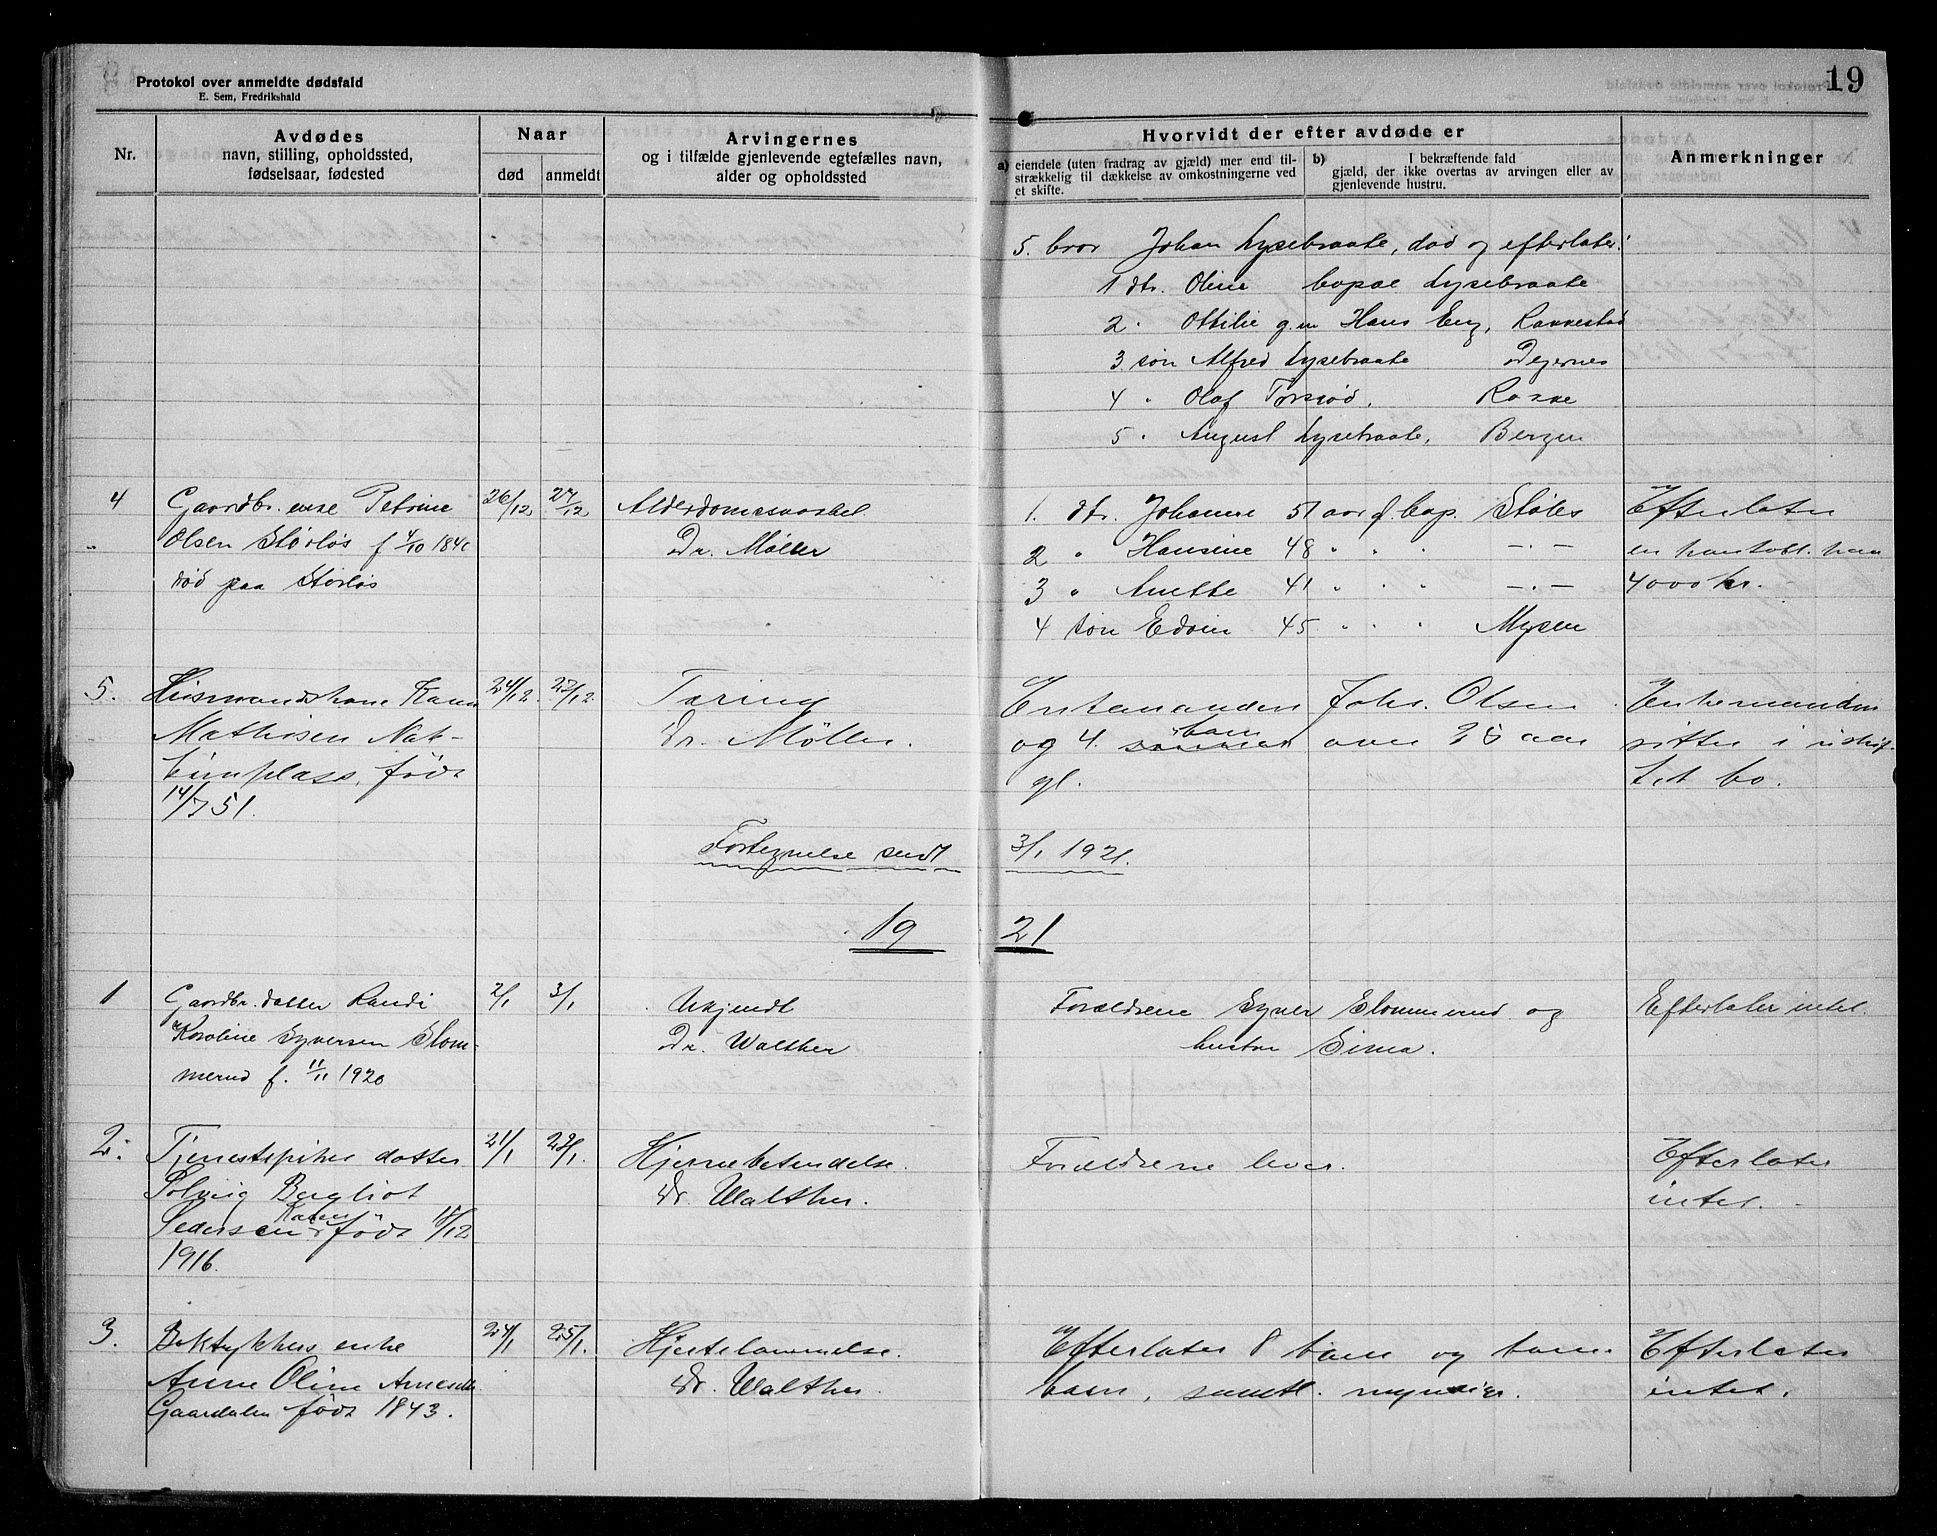 Protokol over anmeldte dødsfald
E. Sem, Fredrikshald
19
Nr.
Avdødes
navn, stilling, opholdssted,
fødselsaar, fødested
Naar
død
anmeldt
Arvingernes
og i tilfælde gjenlevende egtefælles navn,
alder og opholdssted
Hvorvidt der efter avdøde er
a) eiendele (uten fradrag av gjæld) mer end til-
strækkelig til dækkelse av omkostningerne ved
et skifte.
b) I bekræftende fald
gjæld, der ikke overtas av arvingen eller av
gjenlevende hustru.
Anmerkninger
5. bror Johan Lysebraate, død og efterlater:
1 dtr. Oline bopæl Lysebraate
2 " Ottilie g.m Hans Eng, Rakkestad
3 søn Alfred Lysebraate Degernes
4 " Olaf
5 " August Lysebraate, Bergen
4 Gaardbr. enke Petrine 26/12 27/12 Alderdomssvakhet 1. dtr. Johanne 51 aar g. bop. Efterlater
Olsen Størløs f 4/10 184 Dr. Møller 2 " Hansine 48 " " " — . —
død paa Størløs 3 " Anette 41 " " " — . — 4000 kr.
4 søn Edvin 45 " " " Mysen
5. Husmandskone 24/12. 27/12. Tæring Enkemanden Johs. Olsen Enkemanden
Mathisen Dr. Møller. og 4. barn over 25 aar sitter i uskif-
født gl. tet bo.
14/7 51.
Fortegnelse sendt 3/1 1921.
19 21
1 Gaardbr. datter Randi 2/1 3/1 Ukjendt Forældrene Syver Slommerud og Efterlater intet.
Karoline Syversen Slom- Dr. Walther hustru
merud f. 11/11 1920
2. Tjenestepikes datter 21/1 22/1. Hjernebetendelse. Forældrene lever. Efterlater
Solveig Bergliot Dr. Walther. intet.
Pedersen Karen født 18/12
1916.
3. Boktykkers enke 24/1 25/1. Hjertelammelse. Efterlater 8 barn og barne- Efterlater
Anne Oline Dr. Walther. barn, samtl. myndige. intet.
Gaardalen født 1843.